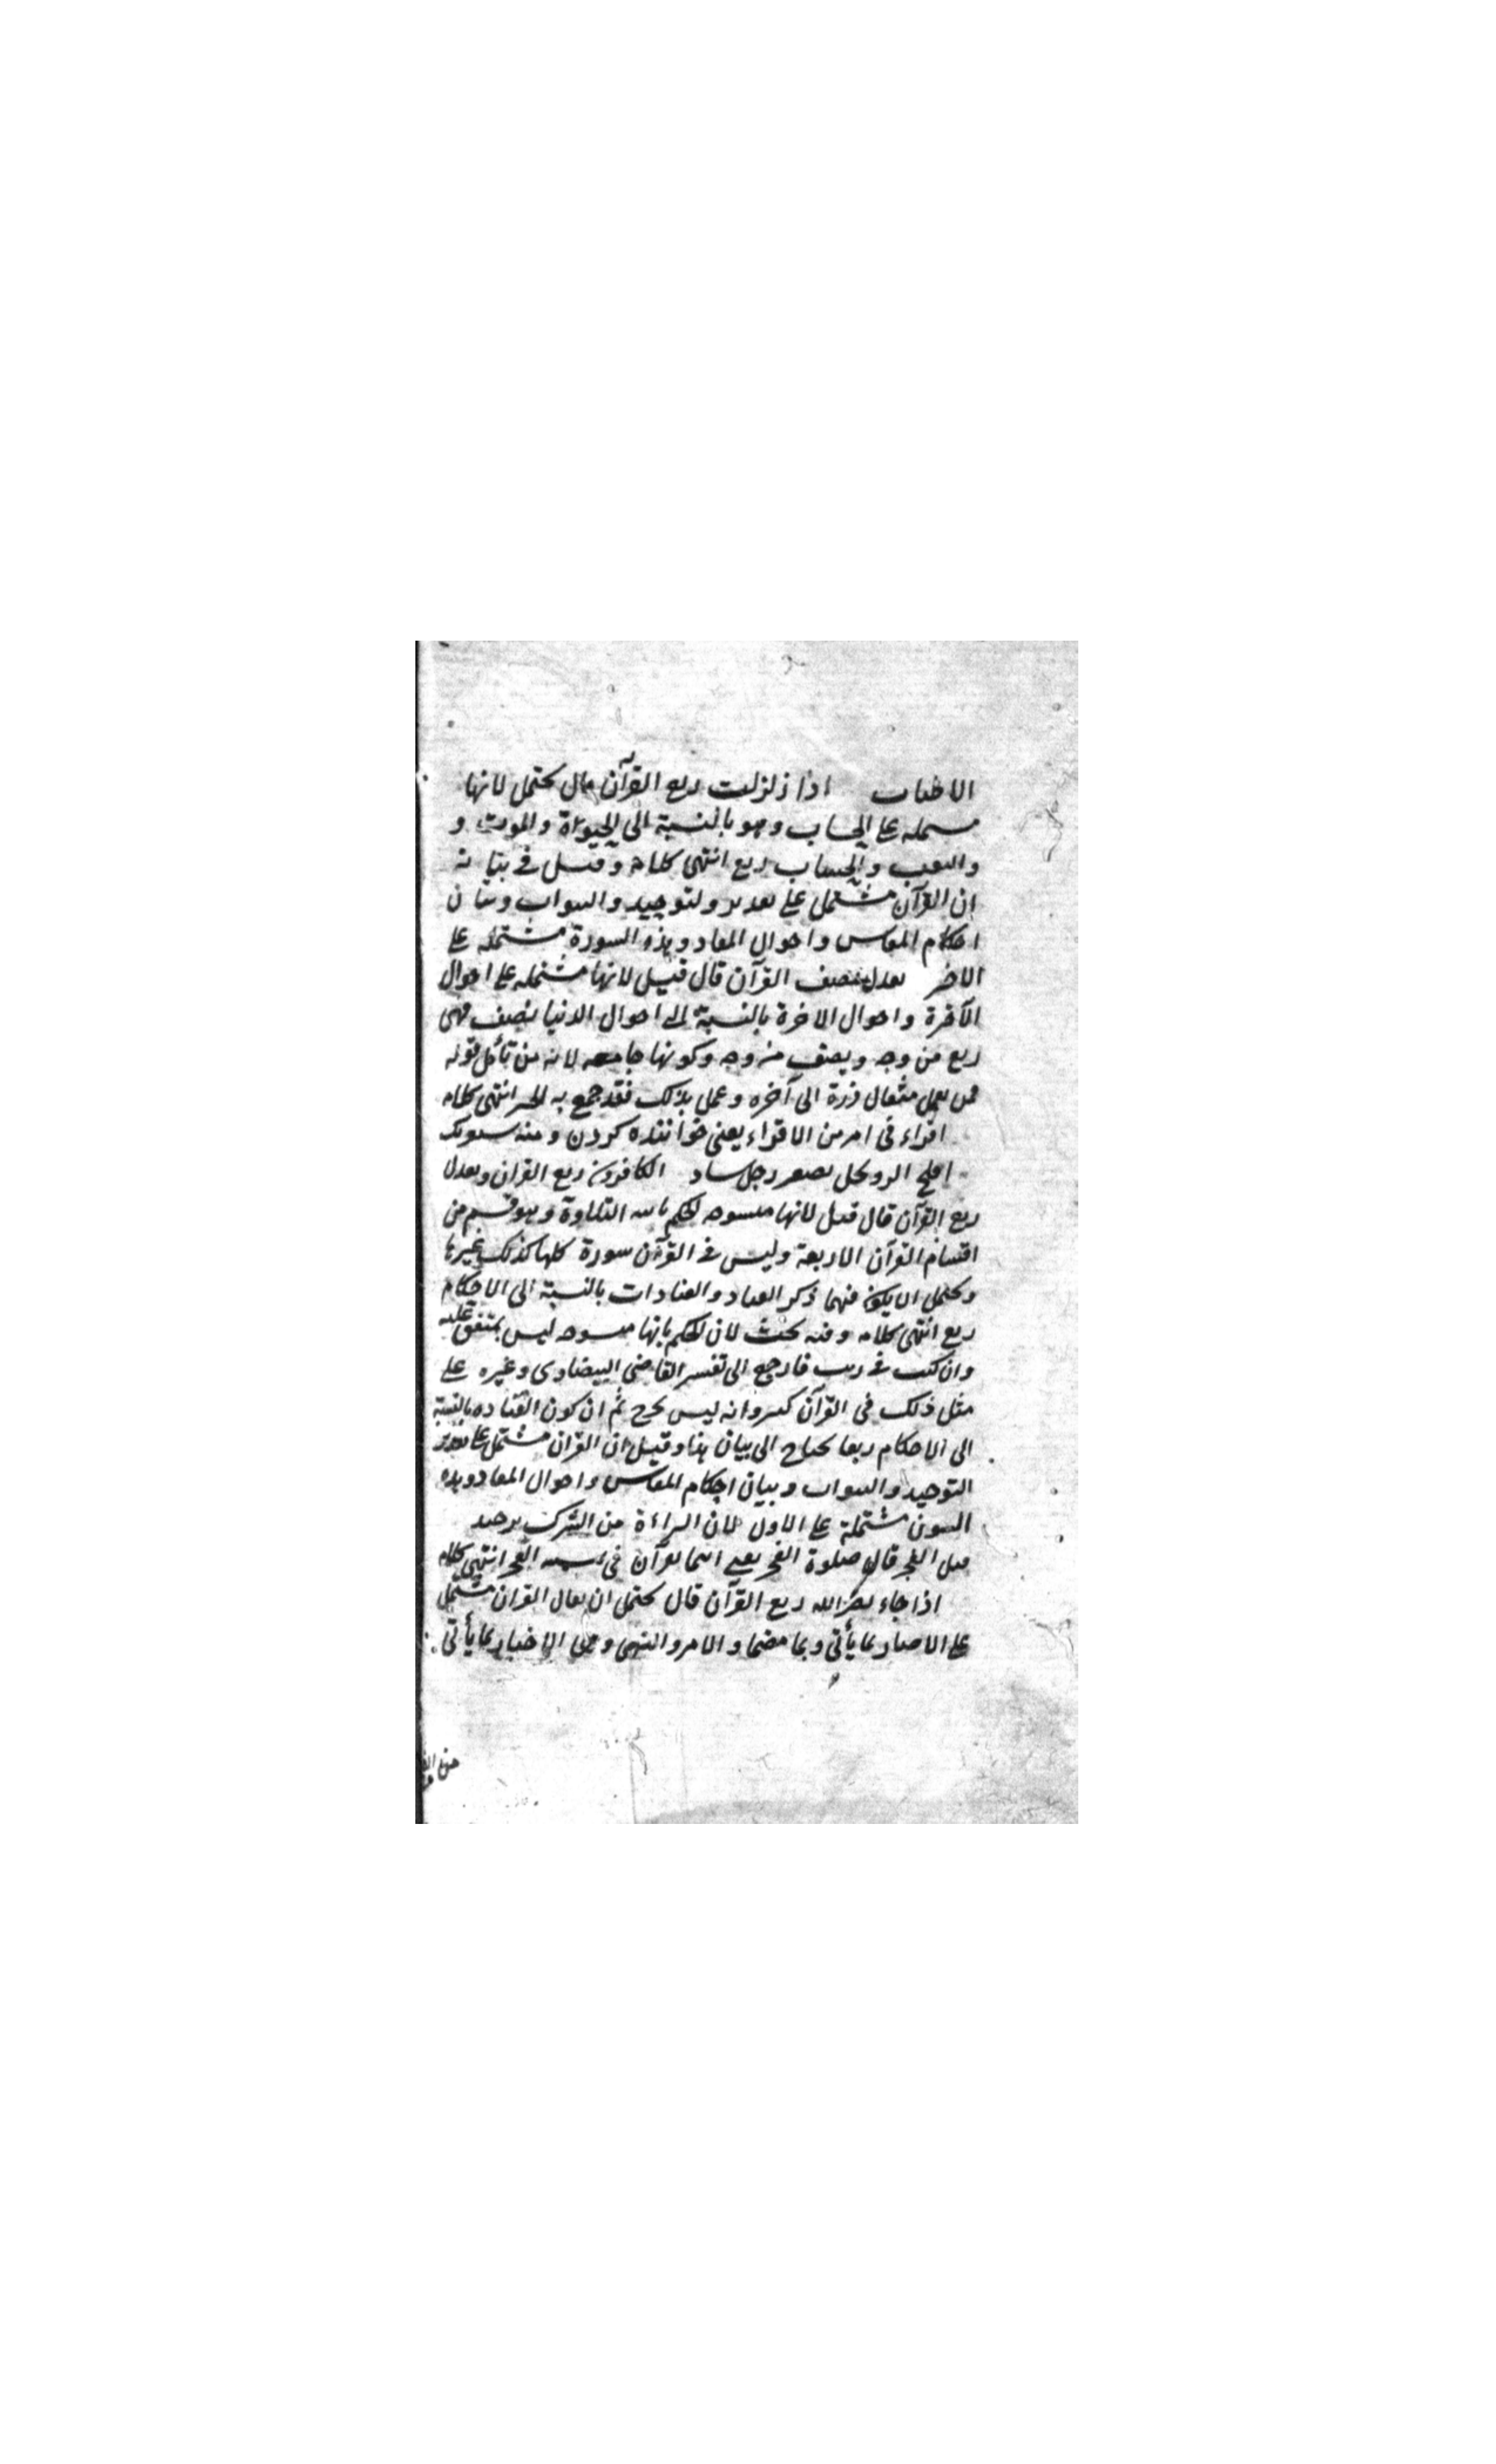 الاطناب اذا زلزلت ربع القرآن قال يحتمل لانها
مشتملة على الحساب وهو بالنسبة الى الحيوة والموت و
والبعث والحساب ربع انتهى كلامه وقيل في بيانه
ان القرآن مشتمل على تقرير ولتوحيد والنبوات وبيان
احكام المعاش واحوال المعاد وهذه السورة مشتملة على
الاخر تعدل بنصف القرآن قال قيل لانها مشتملة على احوال
الآخرة واحوال الاخرة بالنسبة الى احوال الدنيا نصف فهي
ربع من وجه ونصف من وجه وكونها جامعة لانه من تأمل قوله
فمن يعمل مثقال ذرة الى آخره وعمل بذلك فقد جمع به الخير انتهى كلامه
اقراء في امر من الاقراء يعني خواننده كردن ومنه سنقرئك
افلح الرويجل تصغير رجل الكافرون ربع القران وتعدل
ربع القرآن قال قيل لانها منسوخة الحكم ثابتة التلاوة وهو قسم من
اقسام القرآن الاربعة وليس في القرآن سورة كلها كذلك غيرها
ويحتمل ان يكون فيها ذكر العباد والعبادات بالنسبة الى الاحكام
ربع انتهى كلامه وفيه بحث لان الحكم بانها منسوخة ليس بمتفق عليه
وان كنت في ريب فارجع الى تفسير القاضي البيضاوي وغيره على
مثل ذلك في القرآن كثير وانه ليس ثم ان كون العبادة بالنسبة
الى الاحكام ربعا يحتاج الى بيان هذا وقيل ان القران مشتمل على تقرير
التوحيد والنبوات وبيان احكام المعاش واحوال المعاد وهذه
السورة مشتملة على الاول لان البراءة من الشرك توحيد
قبل الفجر قال صلوة الفجر يعني القرآن في سنة الفجر انتهى كلامه
اذا جاء نصر الله ربع القرآن قال يحتمل ان يقال القران مشتمل
على الاخبار بما يأتي وبما مضى والامر والنهي وهي الاخبار بما يأتي